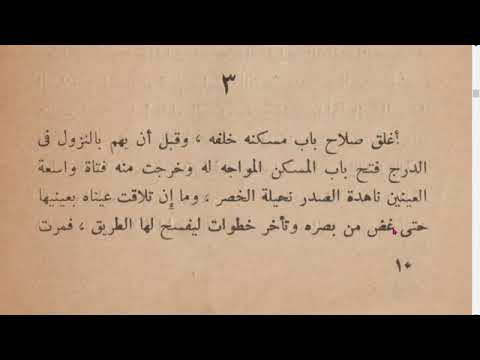 ٣
أغلق صلاح باب مسكنه خلفه ، وقبل أن يهم بالنزول فى
الدرج فتح باب المسكن المواجه له وخرجت منه فتاة واسعة
العينين ناهدة الصدر نحيلة الخصر ، وما إن تلاقت عيناه بعينيها
حتى غض من بصره وتأخر خطوات ليفسح لها الطريق ، فمرت
١٠